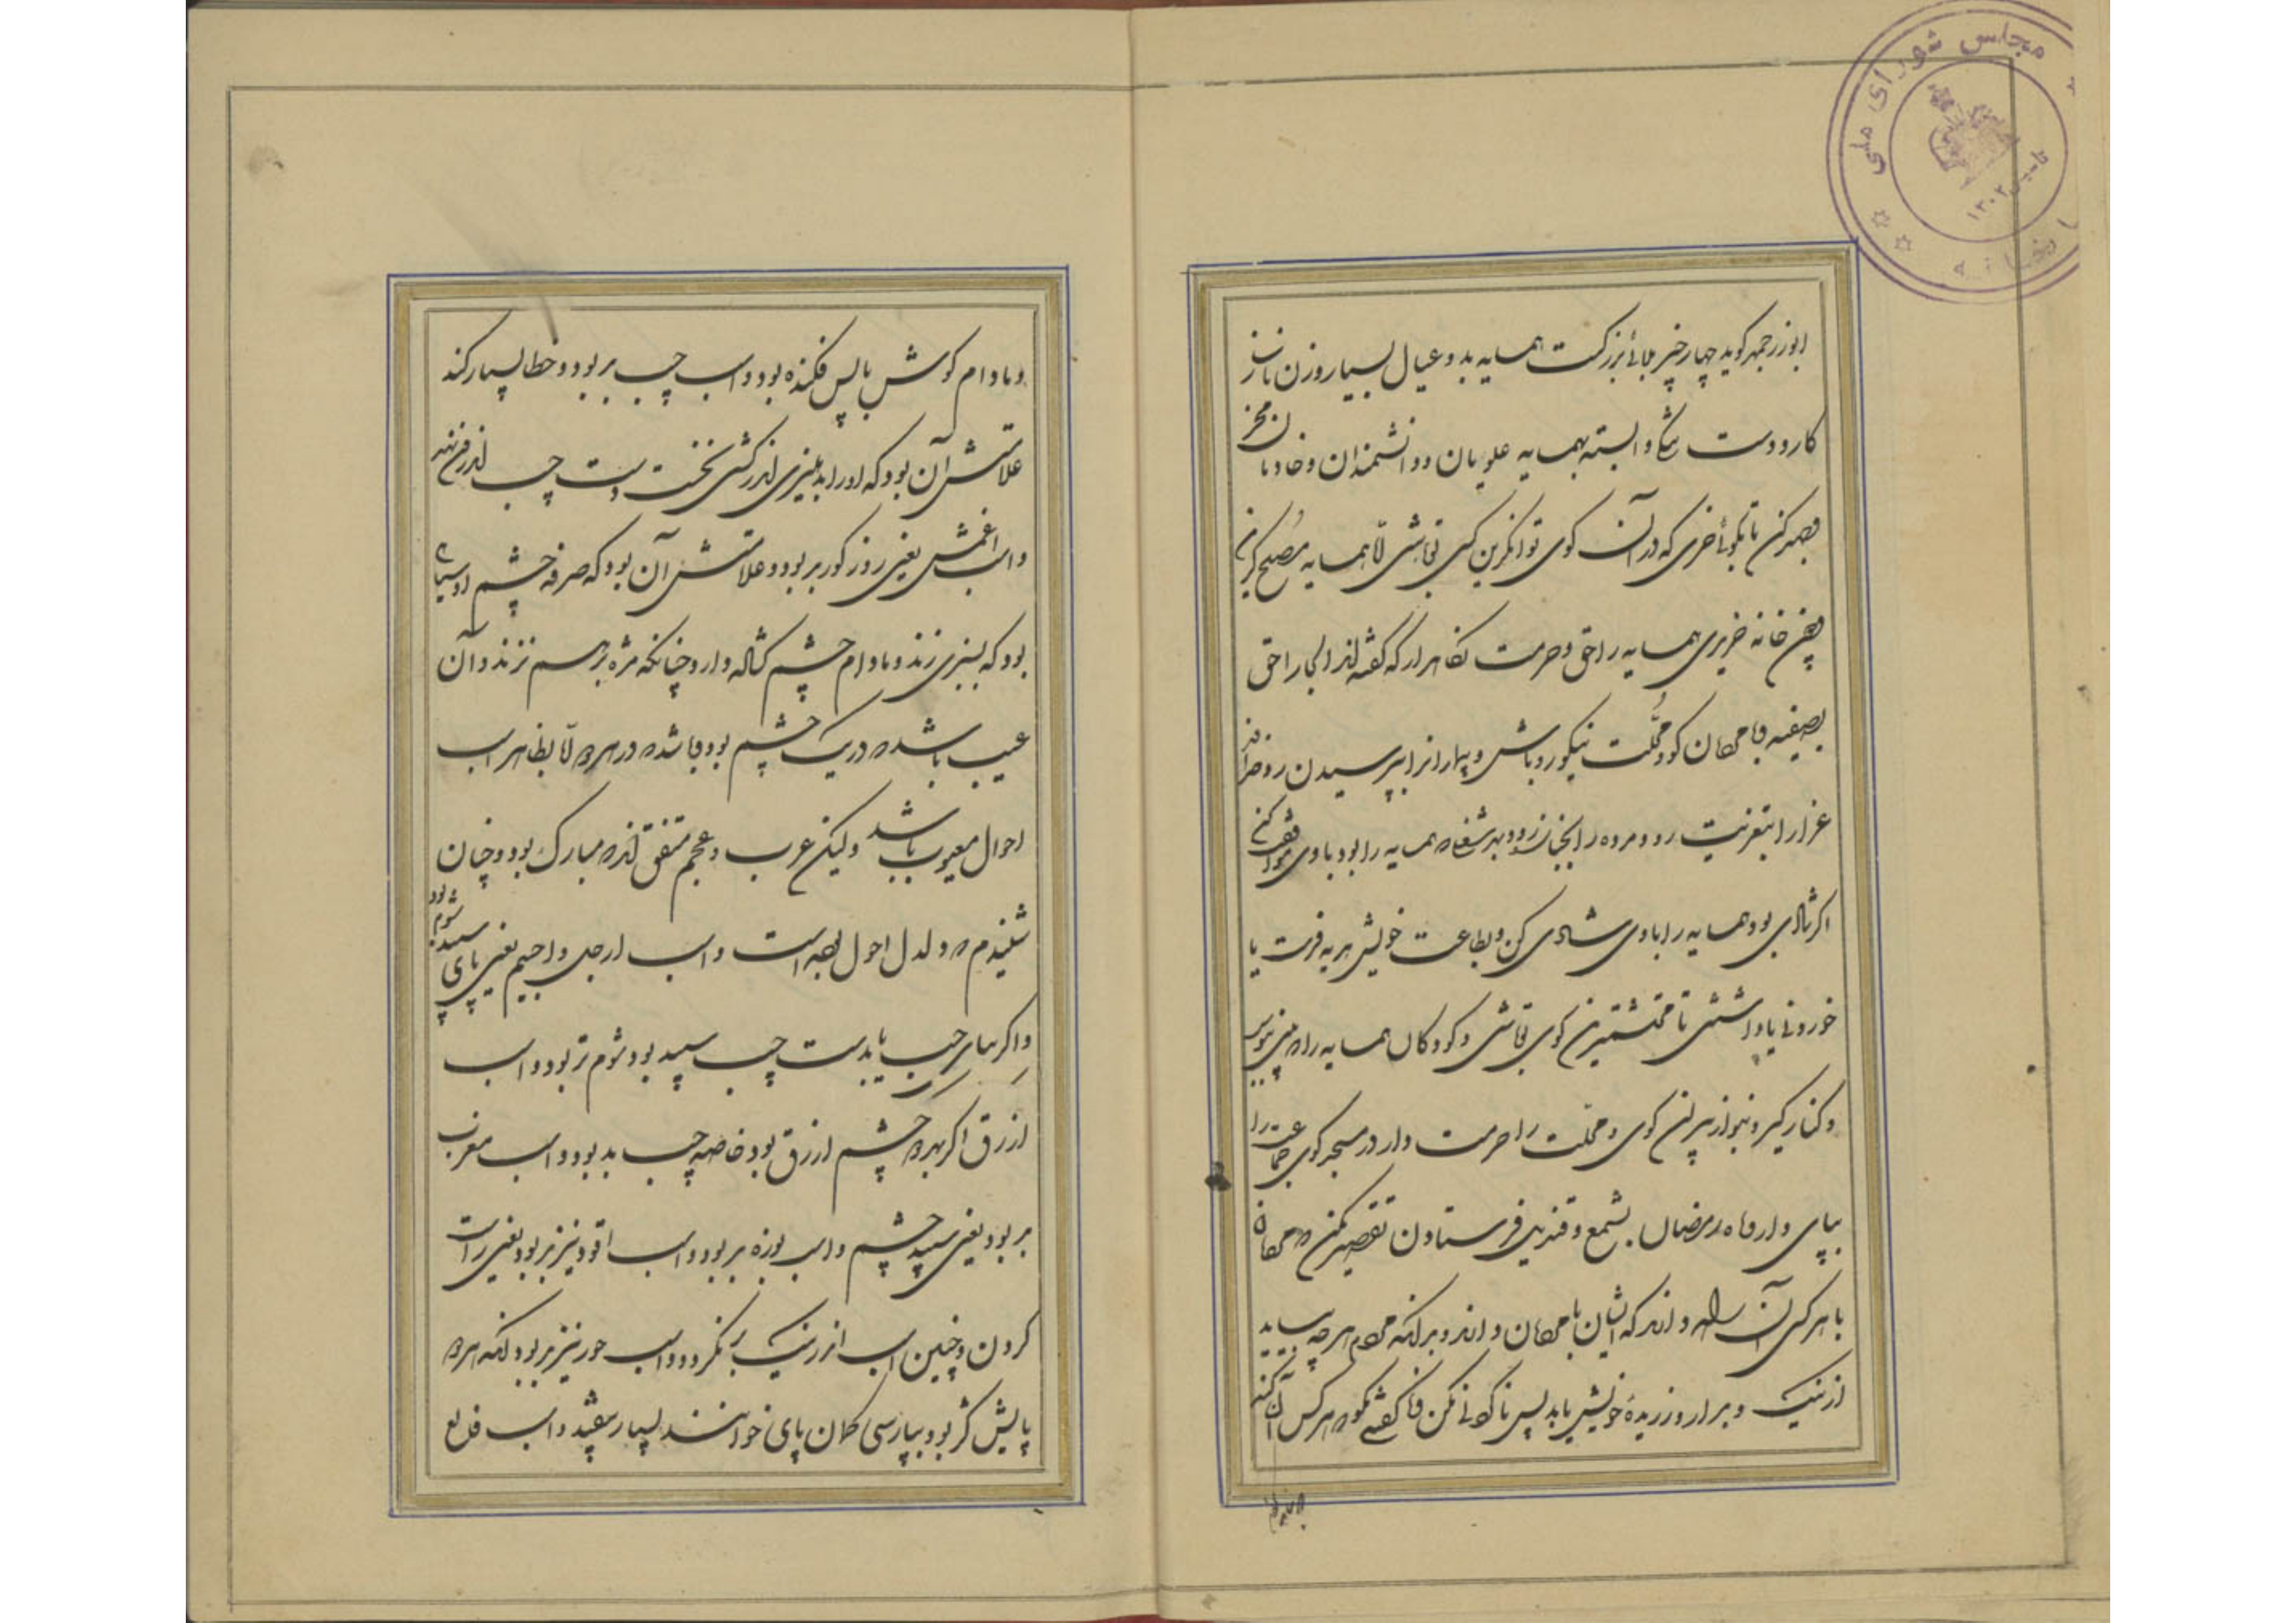 مجلس شورای ملی
تاسیس ۱۳۰۲
ابوزرجمهر گوید چهار چیز بلائی بزرگست همسایه بد و عیال بسیار و زن ناساز
کار و دست تنگی و البته بهمسایه علویان و دانشمندان و خادمان مخر
جهد کن تا بکوئی خری که در آن کوی توانگرترین کسی تو باشی اما همسایه مصلح گزین
چون خانه خریدی همسایه را حق و حرمت نگاهدار که گفته‌اند الجار احق
و با مردمان کوی و محلت نیکو رو باش و بیمارانرا بپرسیدن رو و خداوند
عزا را بتعزیت رو و مرده را بجنازه رو و بهر شغل که همسایه را بود با وی موافقت کن
اگر شادی بود همسایه را با وی شادی کن و بطاعت خویش هدیه فرست یا
خوردنی یا داشتنی تا محتشمترین کوی تو باشی و کودکان همسایه را می‌پرس
و کنار گیر و بنواز پیران کوی و محلت را حرمت دار در مسجد کوی جماعت را
بپای دار و ماه رمضان بشمع و قندیل فرستادن تقصیر مکن که مردمان
با هر کسی آن راه دارند که ایشان با مردمان دارند و بدانکه مردم هر چه بباید
از نیک و بد از ورزیده خویش یابد پس ناکردنی مکن و ناگفتنی مگو که هر کس آن کند
و مادام گوش باپس فکنده بود و اسب چپ بد بود و خطا بسیار کند
علامتش آن بود که او را بدهلیزی اندر کشی نخست دست چپ اندر نهد
و اسب اعمش یعنی روزکور بد بود و علامتش آن بود که حدقه چشم او سیاهی
بود که بسبزی زند و مادام چشم گشاده دارد چنانکه مژه برهم نزند و آن
عیب باشد که در یک چشم بود و باشد که در هر دو اما بظاهر اسب
احول معیوب باشد ولیکن عرب و عجم متفق‌اند که مبارک بود و چنان
شنیدم که دلدل احول بوده است و اسب ارجل واجیم یعنی پای سپید شوم بود
و اگر پای چپ یا دست چپ سپید بود شوم تر بود و اسب
ازرق اگر بهر دو چشم ازرق بود خاصه چپ بد بود و اسب مغرب
بد بود یعنی سپید چشم و اسب بوزه بد بود و اسب اقود نیز بد بود یعنی راست
گردن و چنین اسب اندر نیک ننگرد و اسب خود نیز بد بود آنکه هر دو
پایش کژ بود و بپارسی کمان پای خوانند بسیار بیفتد و اسب قالع